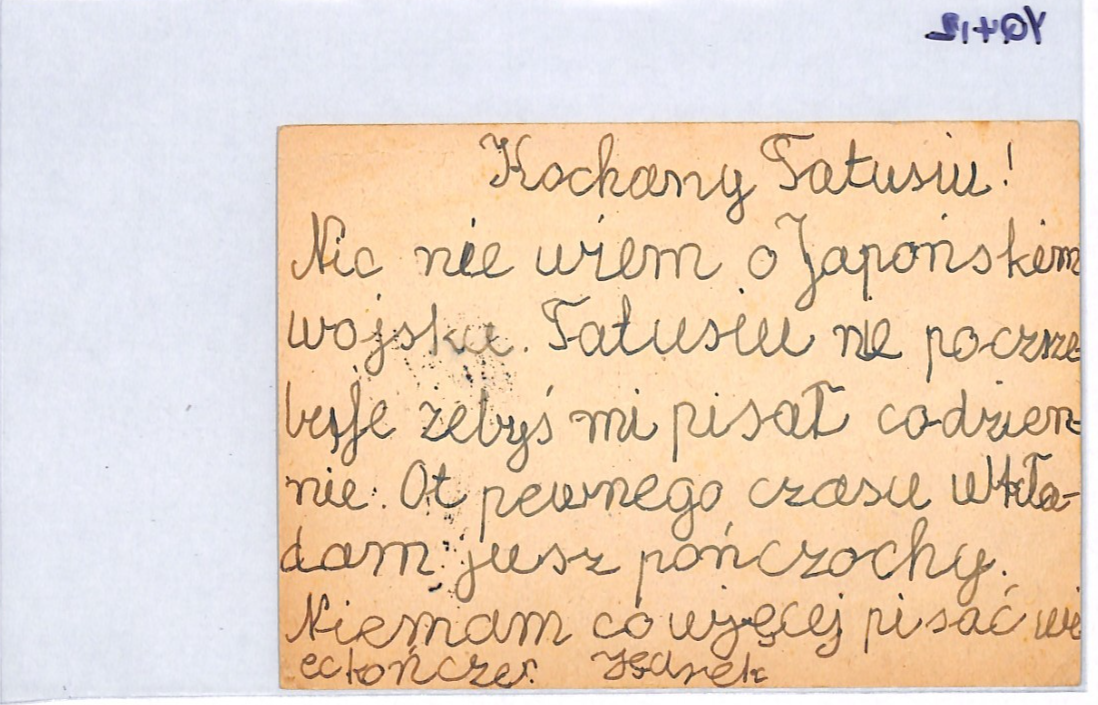 Kochany Tatusiu!
Nic nie wiem o Japońskiem
wojsku. Tatusiu nie poczsze
buje żebyś mi pisał codzien=
nie. Ot pewnego czasu wkła-
dam jusz pończochy.
Niemam co więcej pisać wię
ckończe.